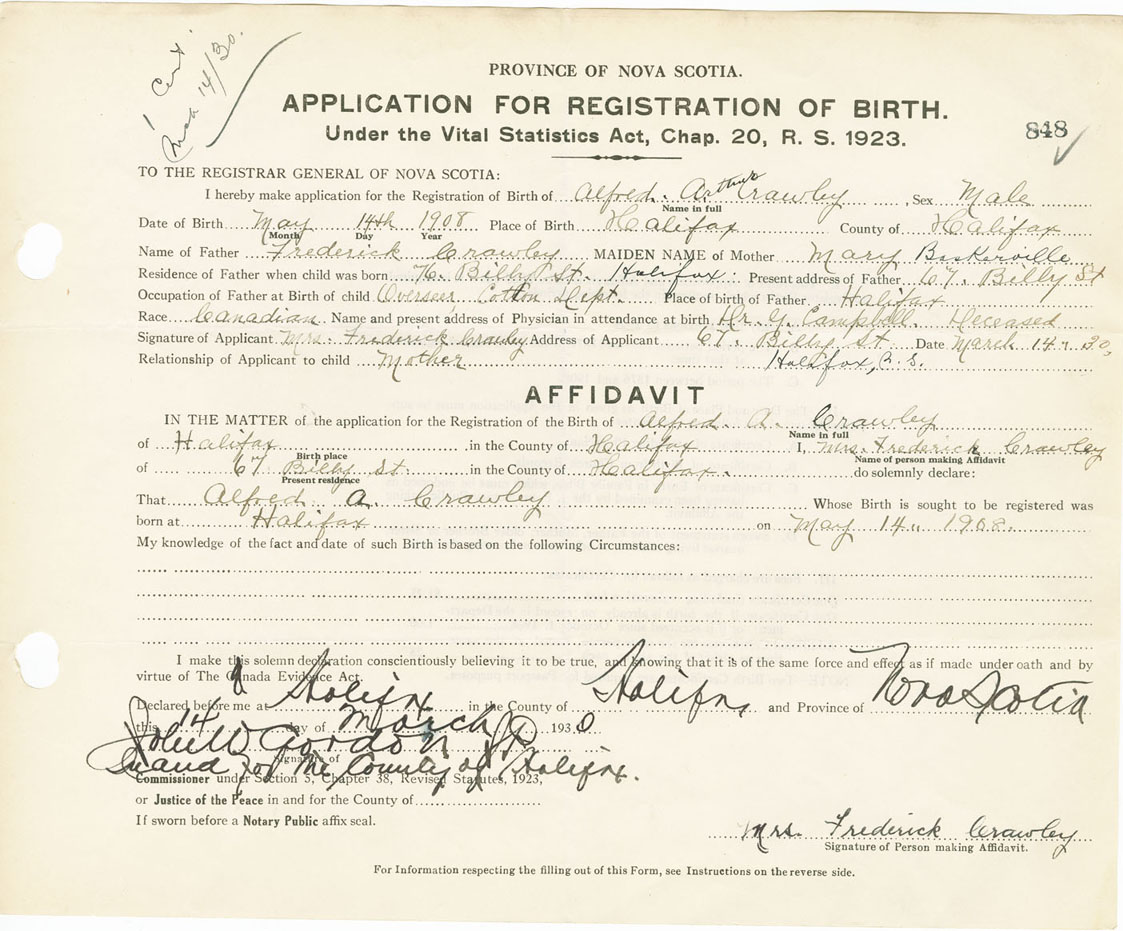 1 Cert.
Mch 14/30.
PROVINCE OF NOVA SCOTIA.
APPLICATION FOR REGISTRATION OF BIRTH.
848
Under the Vital Statistics Act, Chap. 20, R. S. 1923.
TO THE REGISTRAR GENERAL OF NOVA SCOTIA:
I hereby make application for the Registration of Birth of Alfred. Arthur Crawley, Sex Male
Name in full
Date of Birth May 14th 1908 Place of Birth Halifax County of Halifax
Month Day Year
Name of Father Frederick Crawley MAIDEN NAME of Mother Mary Baskerville
Residence of Father when child was born St. Halifax: Present address of Father 67. Billy St
Occupation of Father at Birth of child Overseer, Cotton Dept. Place of birth of Father Halifax
Race Canadian Name and present address of Physician in attendance at birth Dr. G. Campbell. Deceased
Signature of Applicant Mrs. Frederick Crawley Address of Applicant 67. Billy St Date March 14. 30,
Relationship of Applicant to child Mother Halifax, N.S.
AFFIDAVIT
IN THE MATTER of the application for the Registration of the Birth of Alfred. A. Crawley
Name in full
of Halifax in the County of Halifax I, Mrs. Frederick Crawley
Birth place Name of person making Affidavit
of 67 Billy St. in the County of Halifax. do solemnly declare:
Present residence
That Alfred A. Crawley Whose Birth is sought to be registered was
born at Halifax on May 14. 1908.
My knowledge of the fact and date of such Birth is based on the following Circumstances:
I make this solemn declaration conscientiously believing it to be true, and knowing that it is of the same force and effect as if made under oath and by
virtue of The Canada Evidence Act.
Declared before me at Halifax in the County of Halifax, and Province of Nova Scotia
this 14 day of March 1930
John W Gordon J P
Signature of
In and for the County of Halifax.
Commissioner under Section 5, Chapter 38, Revised Statutes, 1923,
or Justice of the Peace in and for the County of
If sworn before a Notary Public affix seal.
Mrs. Frederick Crawley
Signature of Person making Affidavit.
For Information respecting the filling out of this Form, see Instructions on the reverse side.